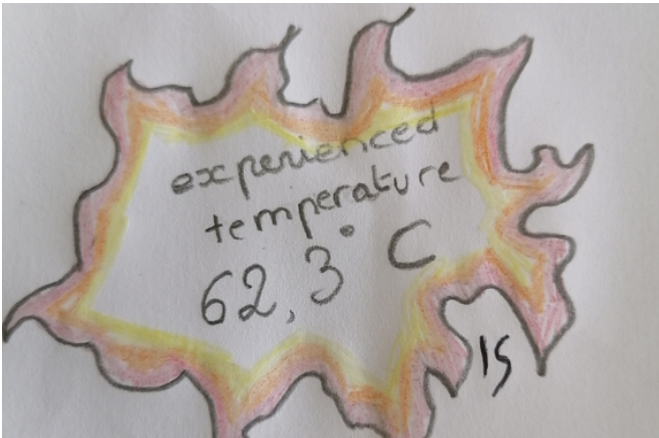 experienced
temperature
62,3° C
15